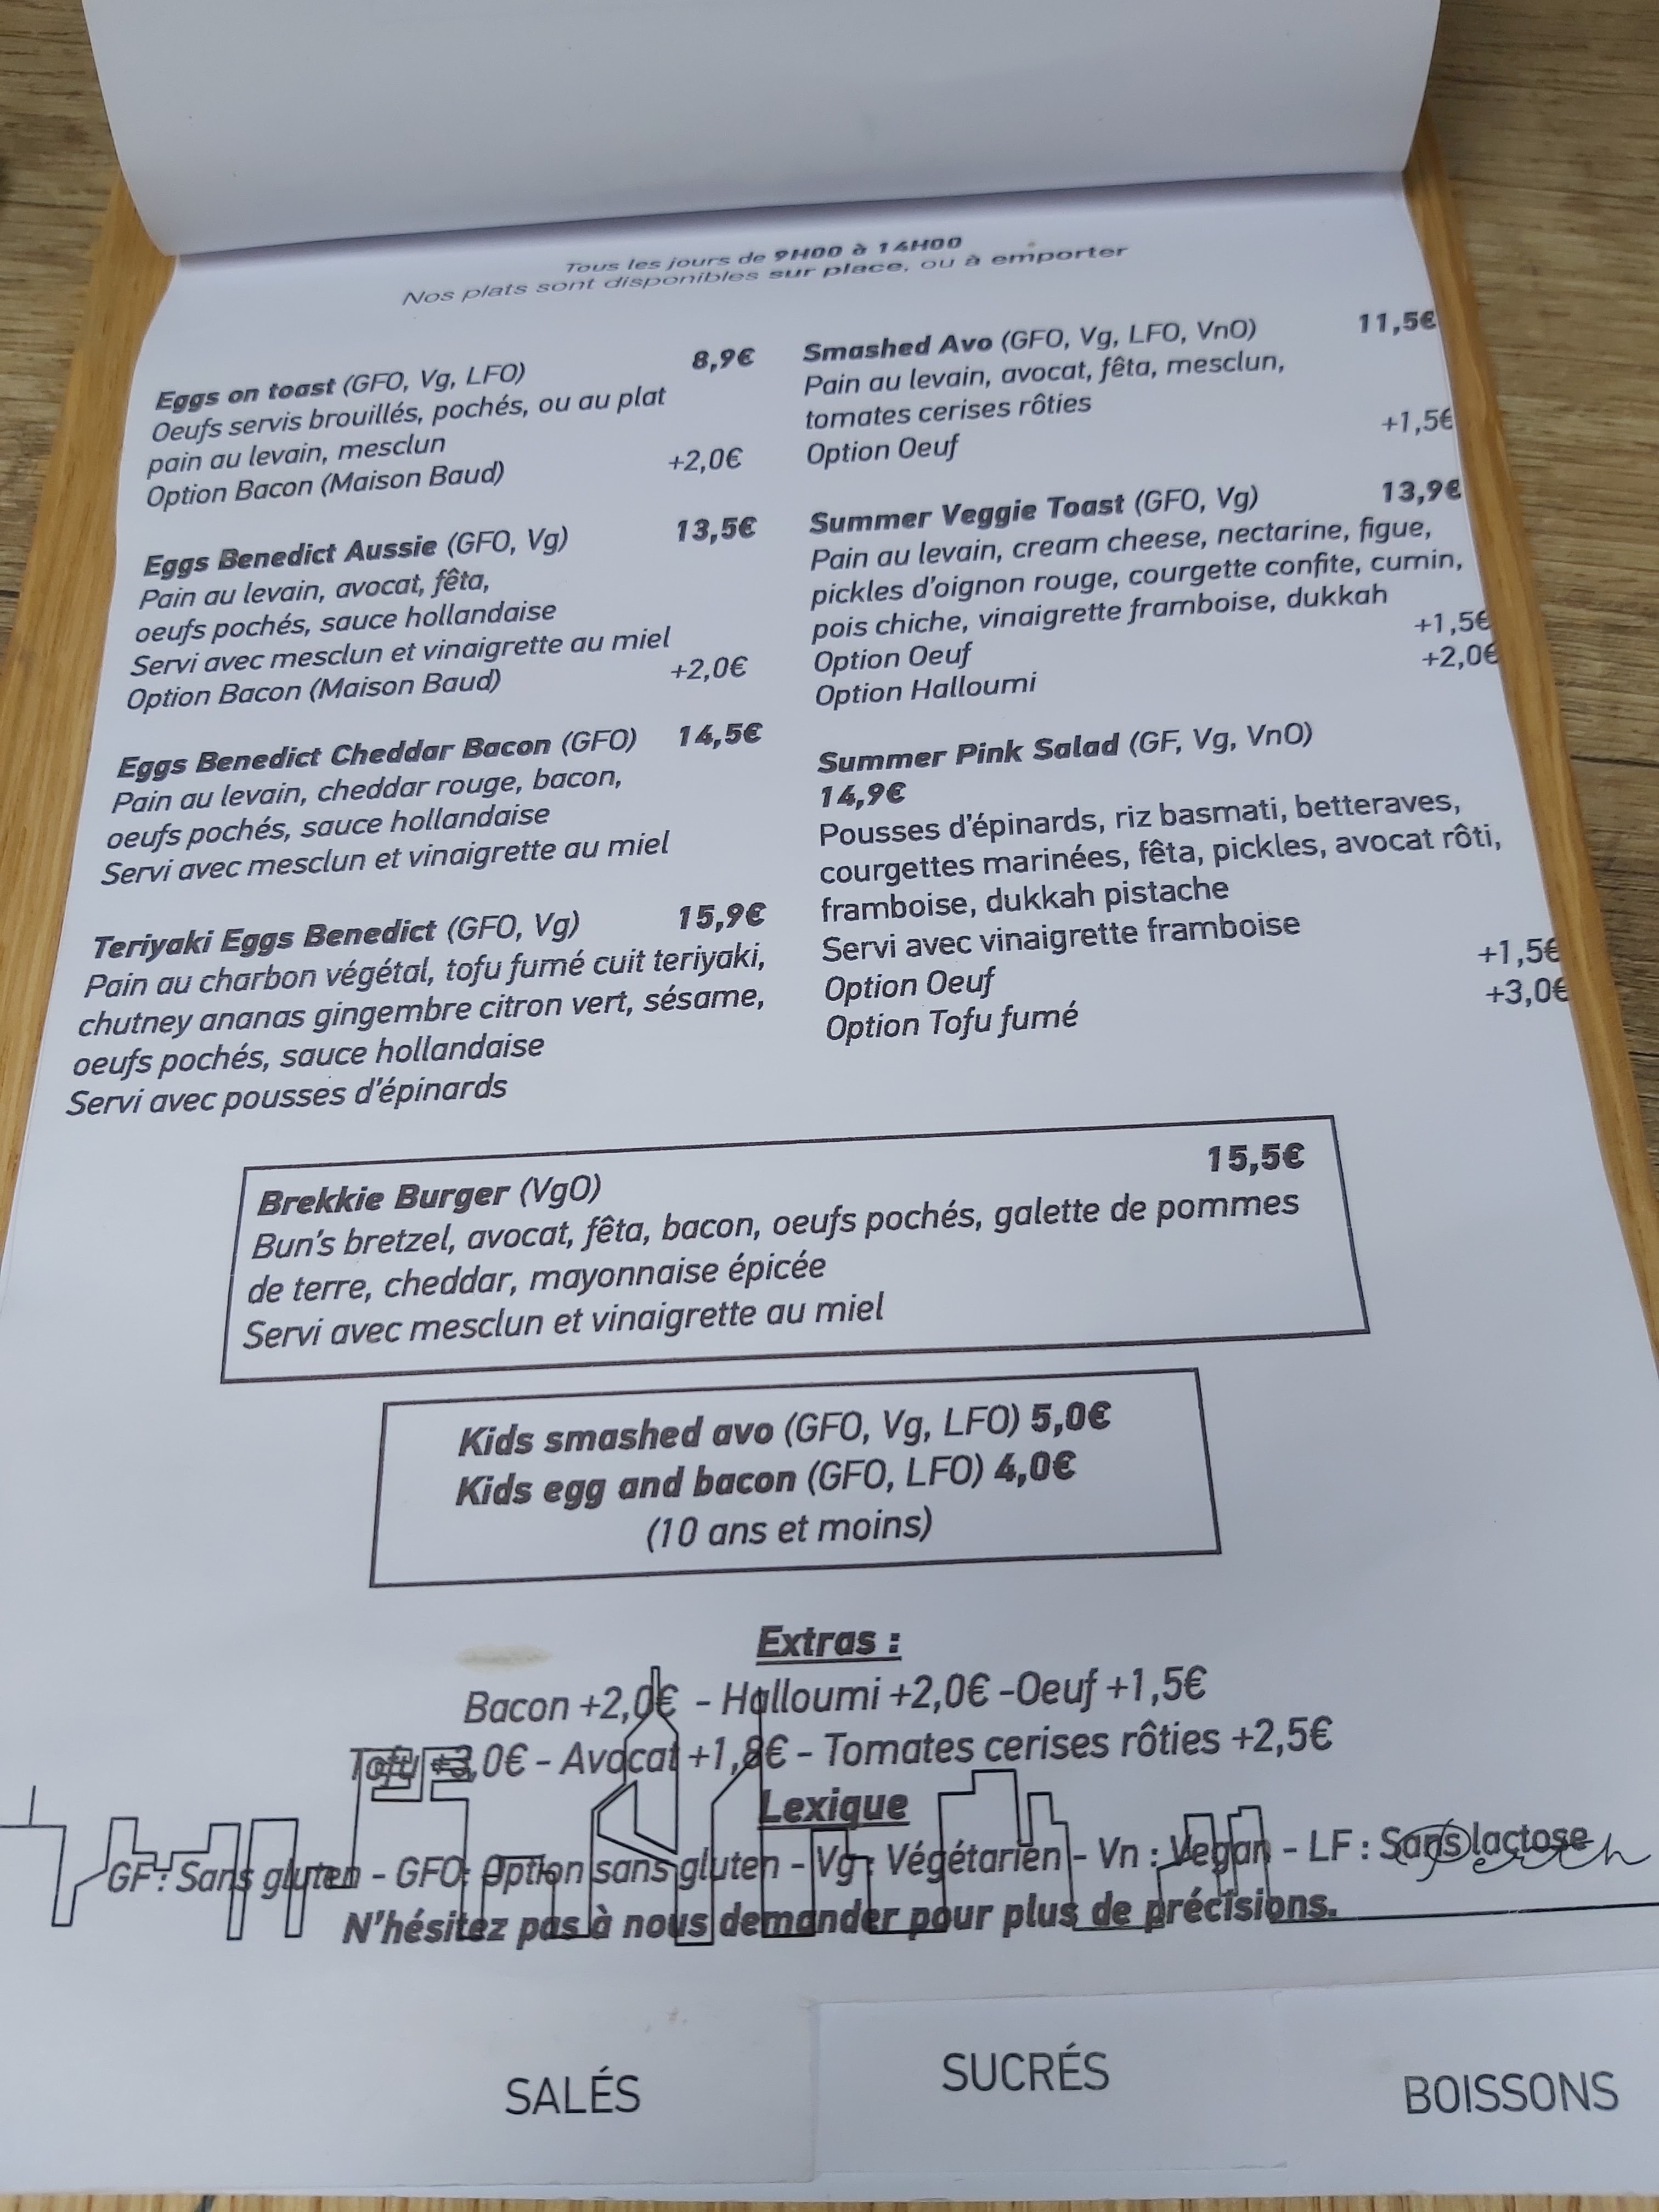 Tous les jours de 9H00 à 14H00
Nos plats sont disponibles sur place, ou à emporter
Eggs on toast (GFO, Vg, LFO) 8,9€
Oeufs servis brouillés, pochés, ou au plat
pain au levain, mesclun
Option Bacon (Maison Baud) +2,0€
Eggs Benedict Aussie (GFO, Vg) 13,5€
Pain au levain, avocat, fêta,
oeufs pochés, sauce hollandaise
Servi avec mesclun et vinaigrette au miel
Option Bacon (Maison Baud) +2,0€
Eggs Benedict Cheddar Bacon (GFO) 14,5€
Pain au levain, cheddar rouge, bacon,
oeufs pochés, sauce hollandaise
Servi avec mesclun et vinaigrette au miel
Teriyaki Eggs Benedict (GFO, Vg) 15,9€
Pain au charbon végétal, tofu fumé cuit teriyaki,
chutney ananas gingembre citron vert, sésame,
oeufs pochés, sauce hollandaise
Servi avec pousses d'épinards
Smashed Avo (GFO, Vg, LFO, VnO) 11,5€
Pain au levain, avocat, fêta, mesclun,
tomates cerises rôties
Option Oeuf +1,5€
Summer Veggie Toast (GFO, Vg) 13,9€
Pain au levain, cream cheese, nectarine, figue,
pickles d'oignon rouge, courgette confite, cumin,
pois chiche, vinaigrette framboise, dukkah
Option Oeuf +1,5€
Option Halloumi +2,0€
Summer Pink Salad (GF, Vg, VnO)
14,9€
Pousses d'épinards, riz basmati, betteraves,
courgettes marinées, fêta, pickles, avocat rôti,
framboise, dukkah pistache
Servi avec vinaigrette framboise
Option Oeuf +1,5€
Option Tofu fumé +3,0€
Brekkie Burger (VgO) 15,5€
Bun's bretzel, avocat, fêta, bacon, oeufs pochés, galette de pommes
de terre, cheddar, mayonnaise épicée
Servi avec mesclun et vinaigrette au miel
Kids smashed avo (GFO, Vg, LFO) 5,0€
Kids egg and bacon (GFO, LFO) 4,0€
(10 ans et moins)
Extras :
Bacon +2,0€ - Halloumi +2,0€ -Oeuf +1,5€
Tofu +3,0€ - Avocat +1,8€ - Tomates cerises rôties +2,5€
Lexique
GF : Sans gluten - GFO: Option sans gluten - Vg : Végétarien - Vn : Vegan - LF : Sans lactose
Perth
N'hésitez pas à nous demander pour plus de précisions.
SALÉS
SUCRÉS
BOISSONS